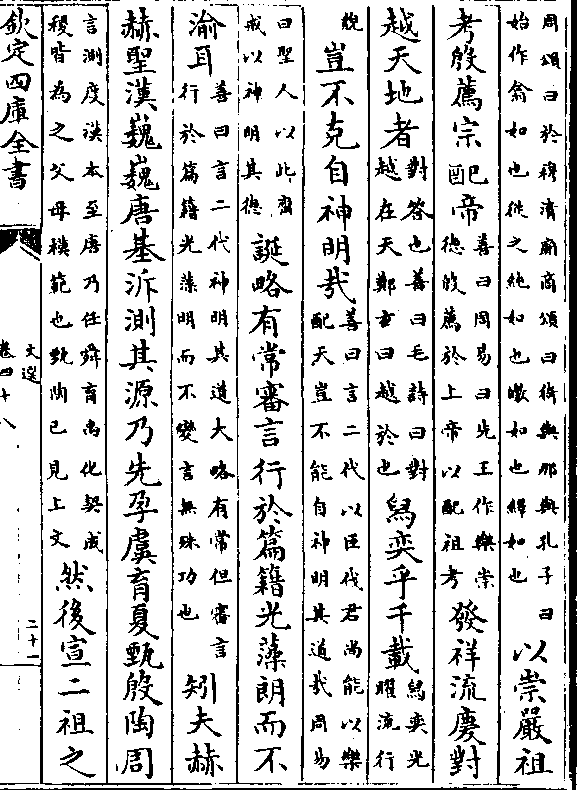 周頌曰於穆清廟商頌曰猗與那與孔子曰
始作翕如也從之純如也皦如也繹如也
以崇嚴祖
考殷薦宗配帝
善曰周易曰先王作樂崇
德殷薦於上帝以配祖考
發祥流慶對
越天地者
對答也善曰毛詩曰對
越在天鄭玄曰越於也
舄奕乎千載
舄奕光
曜流行
貌
豈不克自神明哉
善曰言二代以臣伐君尚能以樂
配天豈不能自神明其道哉周易
曰聖人以此齋
戒以神明其德
誕略有常審言行於篇籍光藻朗而不
渝耳
善曰言二代神明其道大略有常但審言
行於篇籍光藻明而不變言無殊功也
矧夫赫
赫聖漢巍巍唐基泝測其源乃先孕虞育夏甄殷陶周
言測度漢本至唐乃任舜育禹化契成
稷皆為之父母模範也甄陶已見上文
然後宣二祖之
欽定四庫全書
文選
卷四十八
二十一